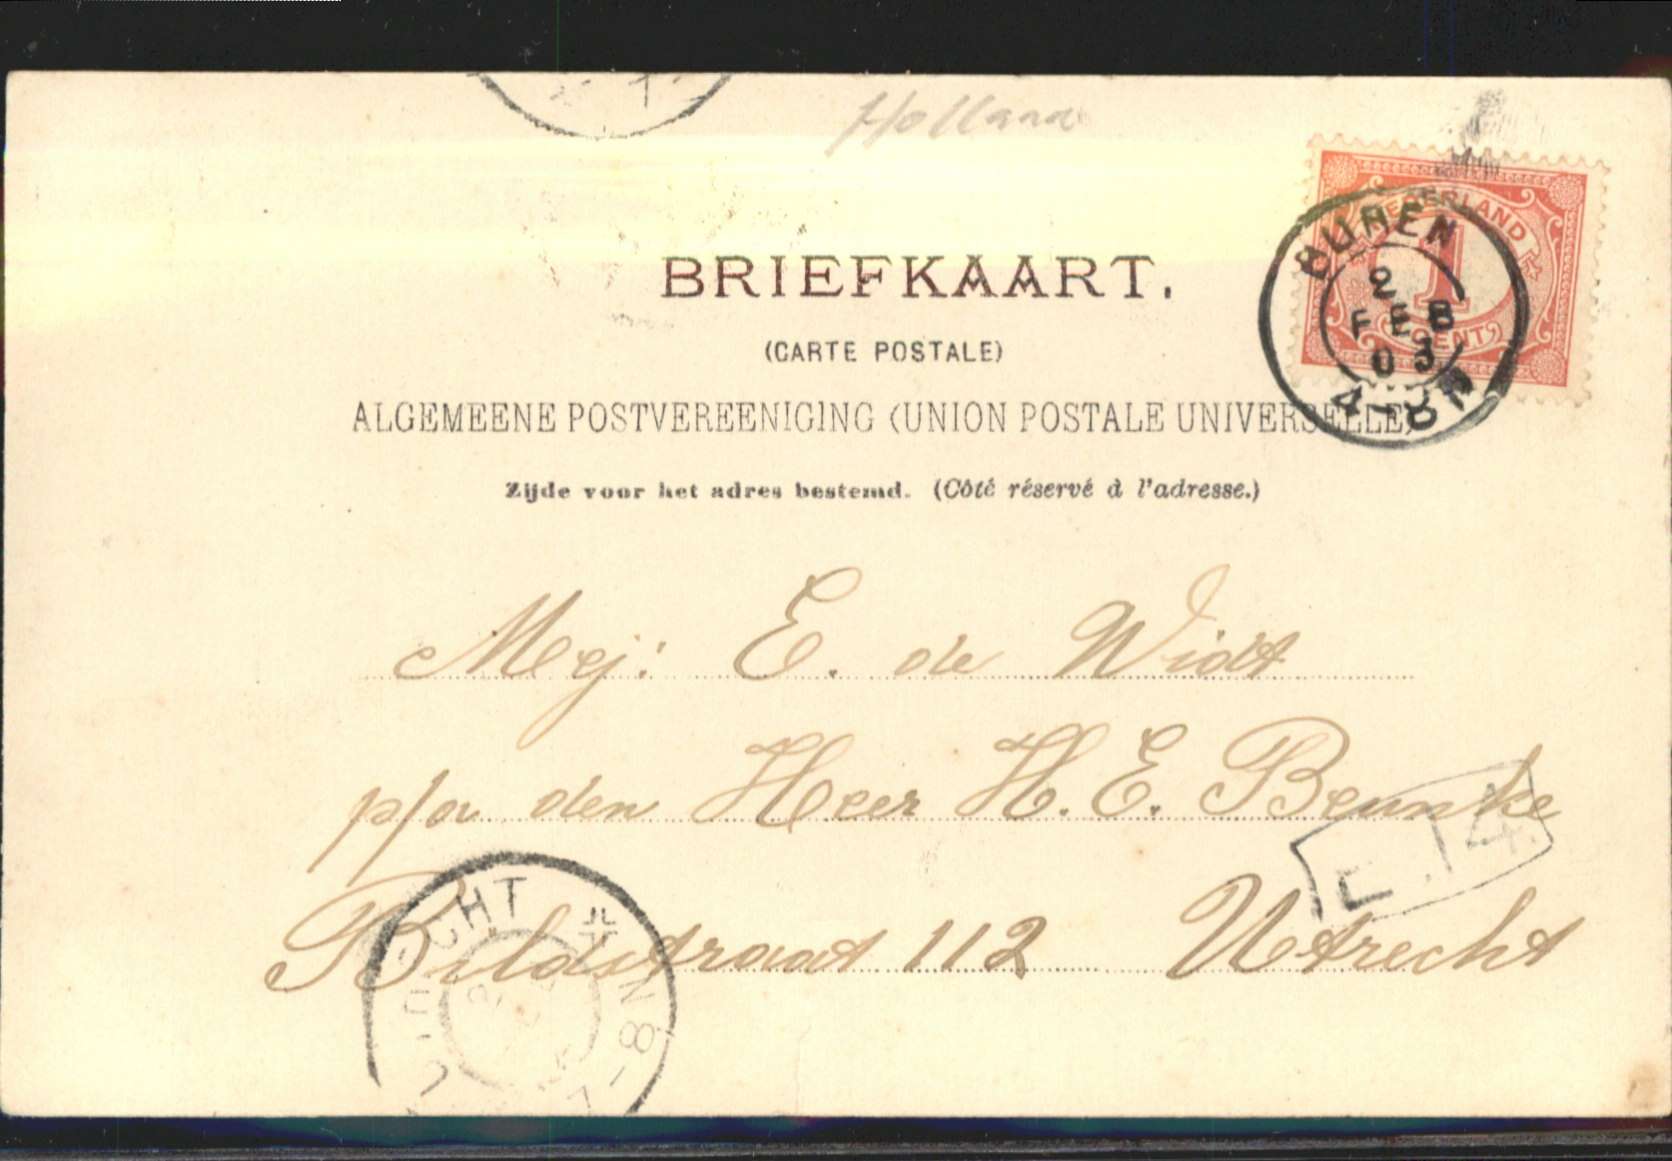 Holland
NEDERLAND
1
CENT
BUREN
2
FEB
03
4-8N
BRIEFKAART.
(CARTE POSTALE)
ALGEMEENE POSTVEREENIGING (UNION POSTALE UNIVERSELLE)
Zijde voor het adres bestemd. (Côté réservé à l'adresse.)
Mej: E. de Widt
p/a den Heer H. E. Beunke
E. 14.
Bildstraat 112 Utrecht
UTRECHT
8-